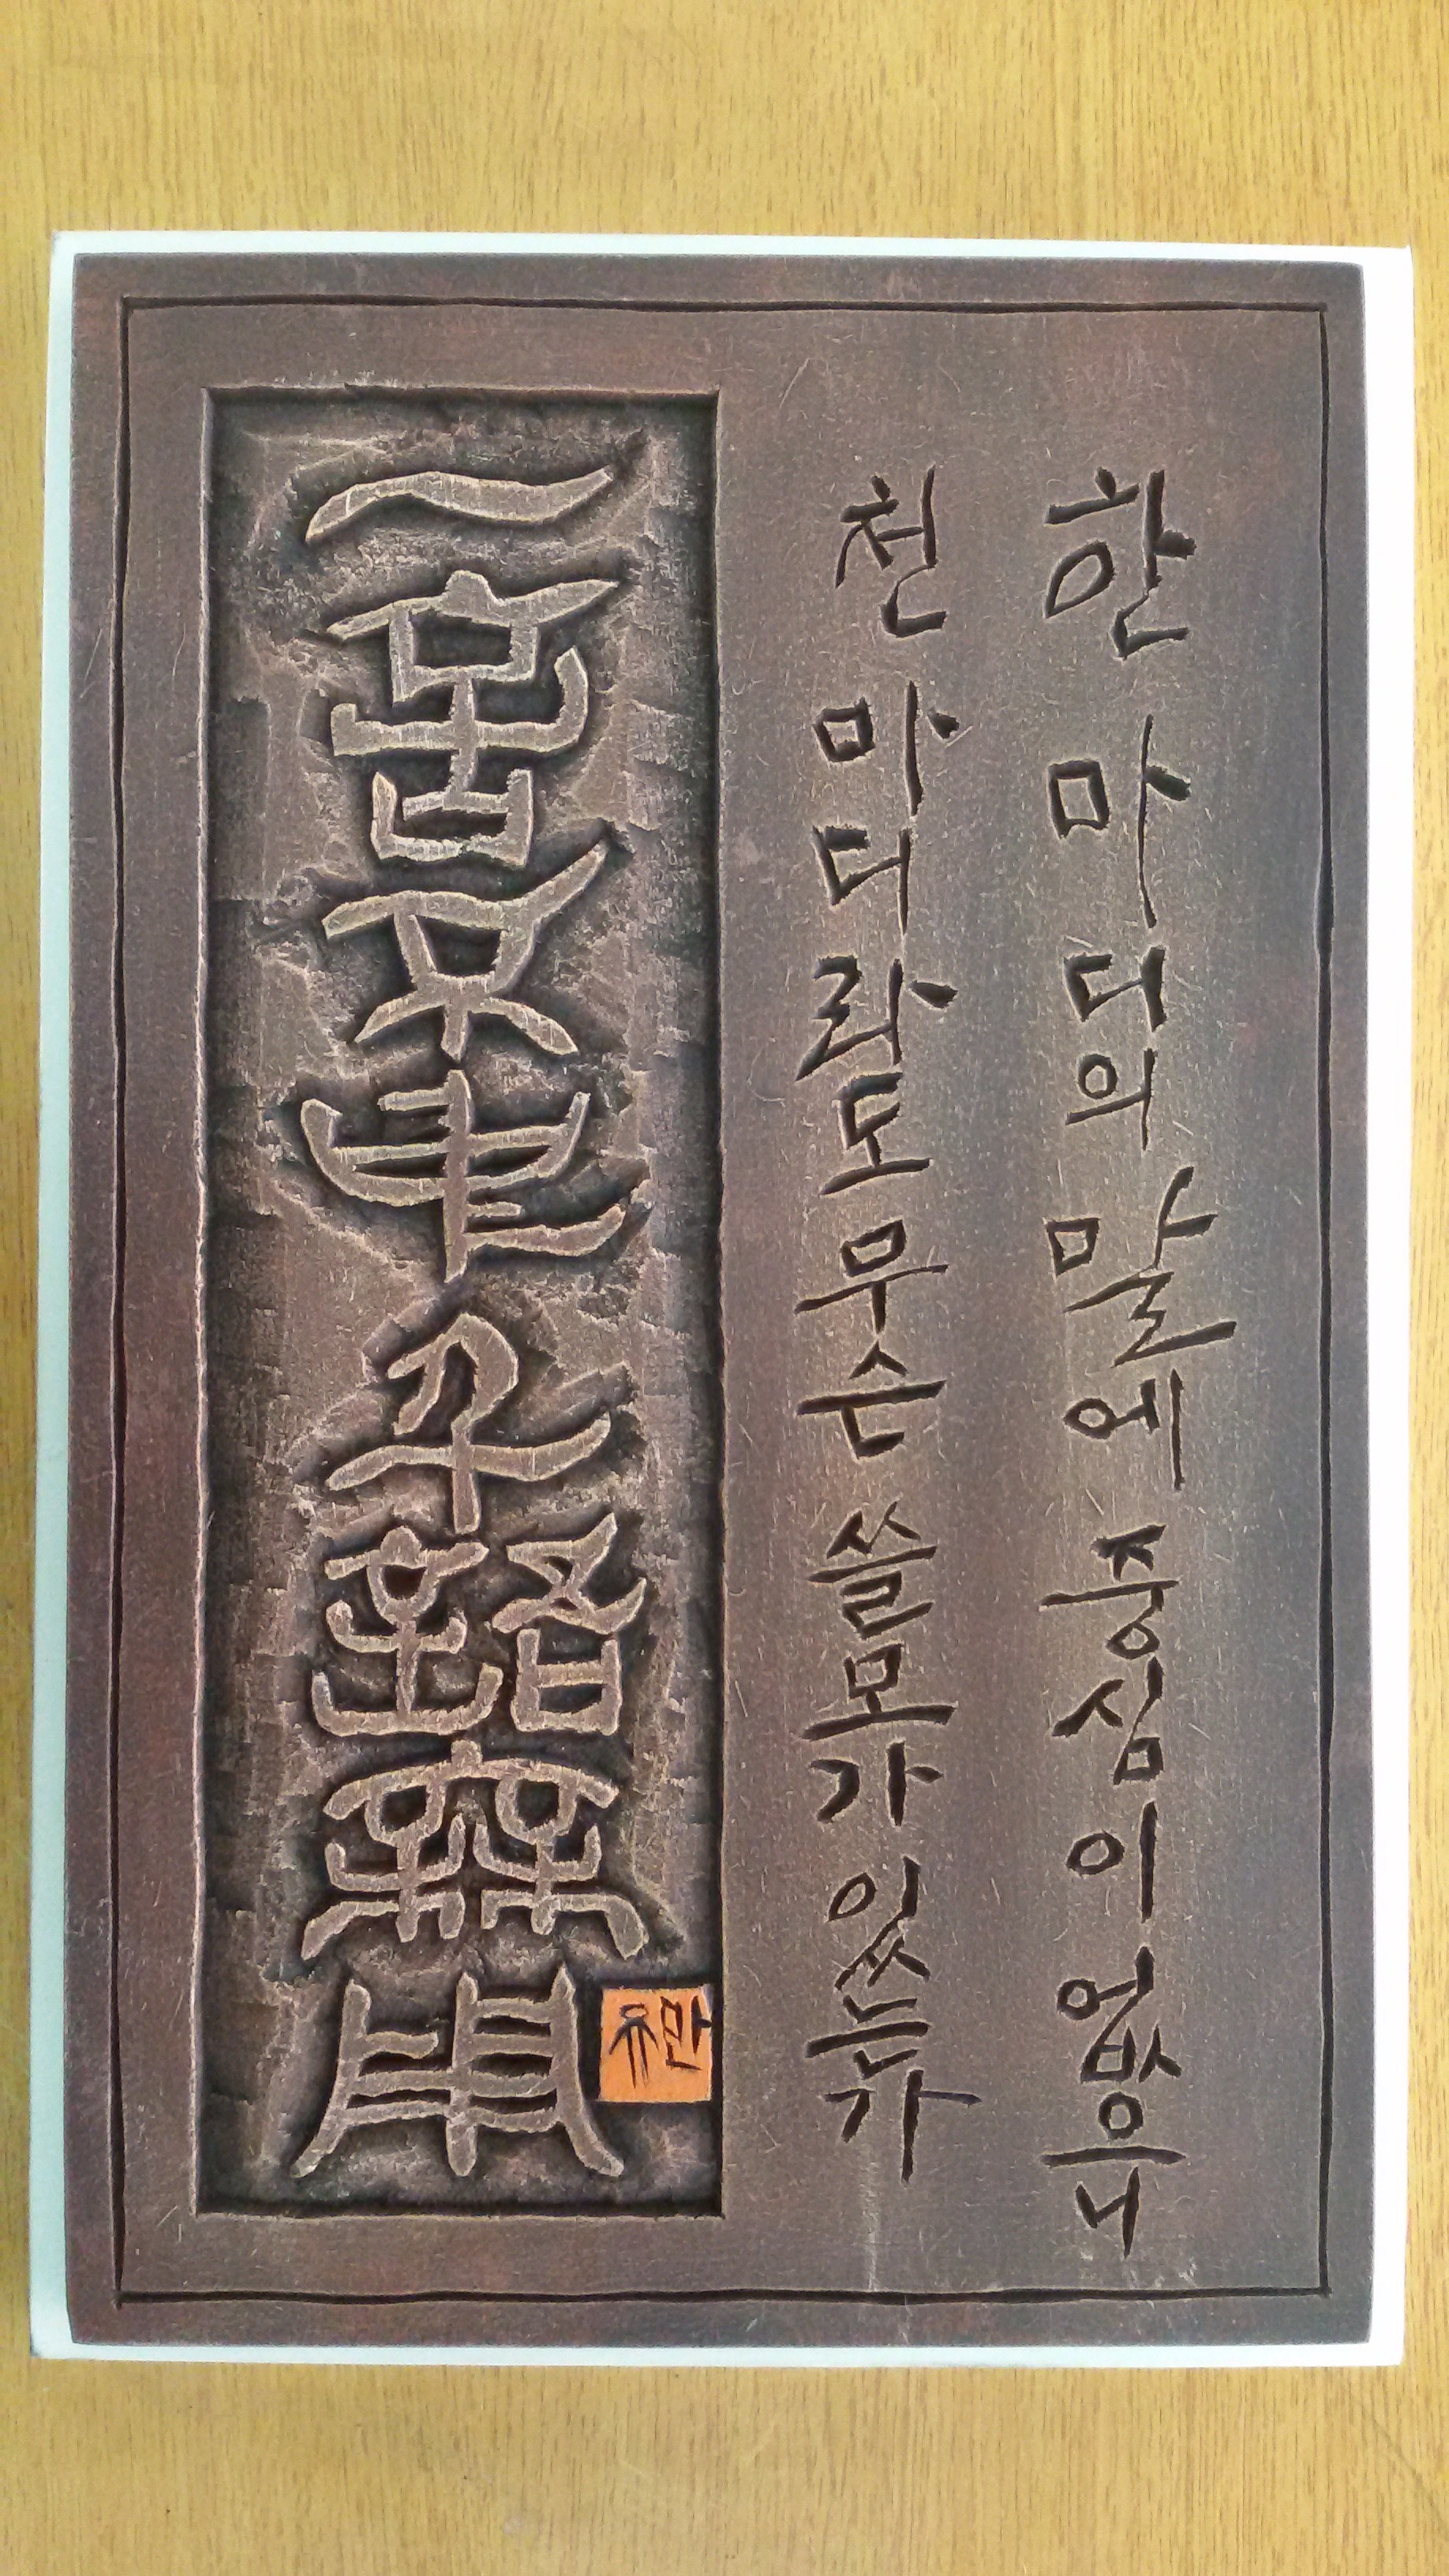 한 마디의 말에 중심이 없으니
천 마디라도 무슨 쓸모가 있는가
一言不中千語無用
만유